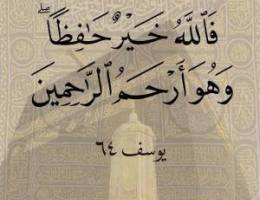 فَٱللَّهُ خَيْرٌ حَٰفِظًاۖ
وَهُوَ أَرْحَمُ ٱلرَّٰحِمِينَ
يوسف ٦٤